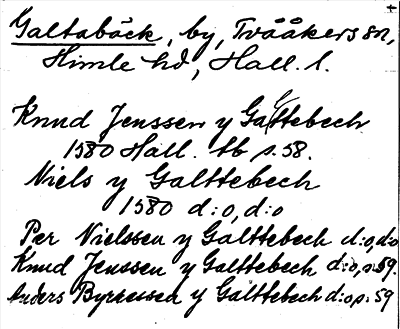 Galtabäck, by, Tvååkers sn,
Himle hd, Hall. l.
Knud Jenssen y Galttebech
1580 Hall. tb s. 58.
Niels y Galttebech
1580 d:o, d:o
Per Nielssen y Galttebech d:o, d:o
Knud Jenssen y Galttebech d:o, s. 59.
Anders Byrressen y Galttebech d:o s. 59